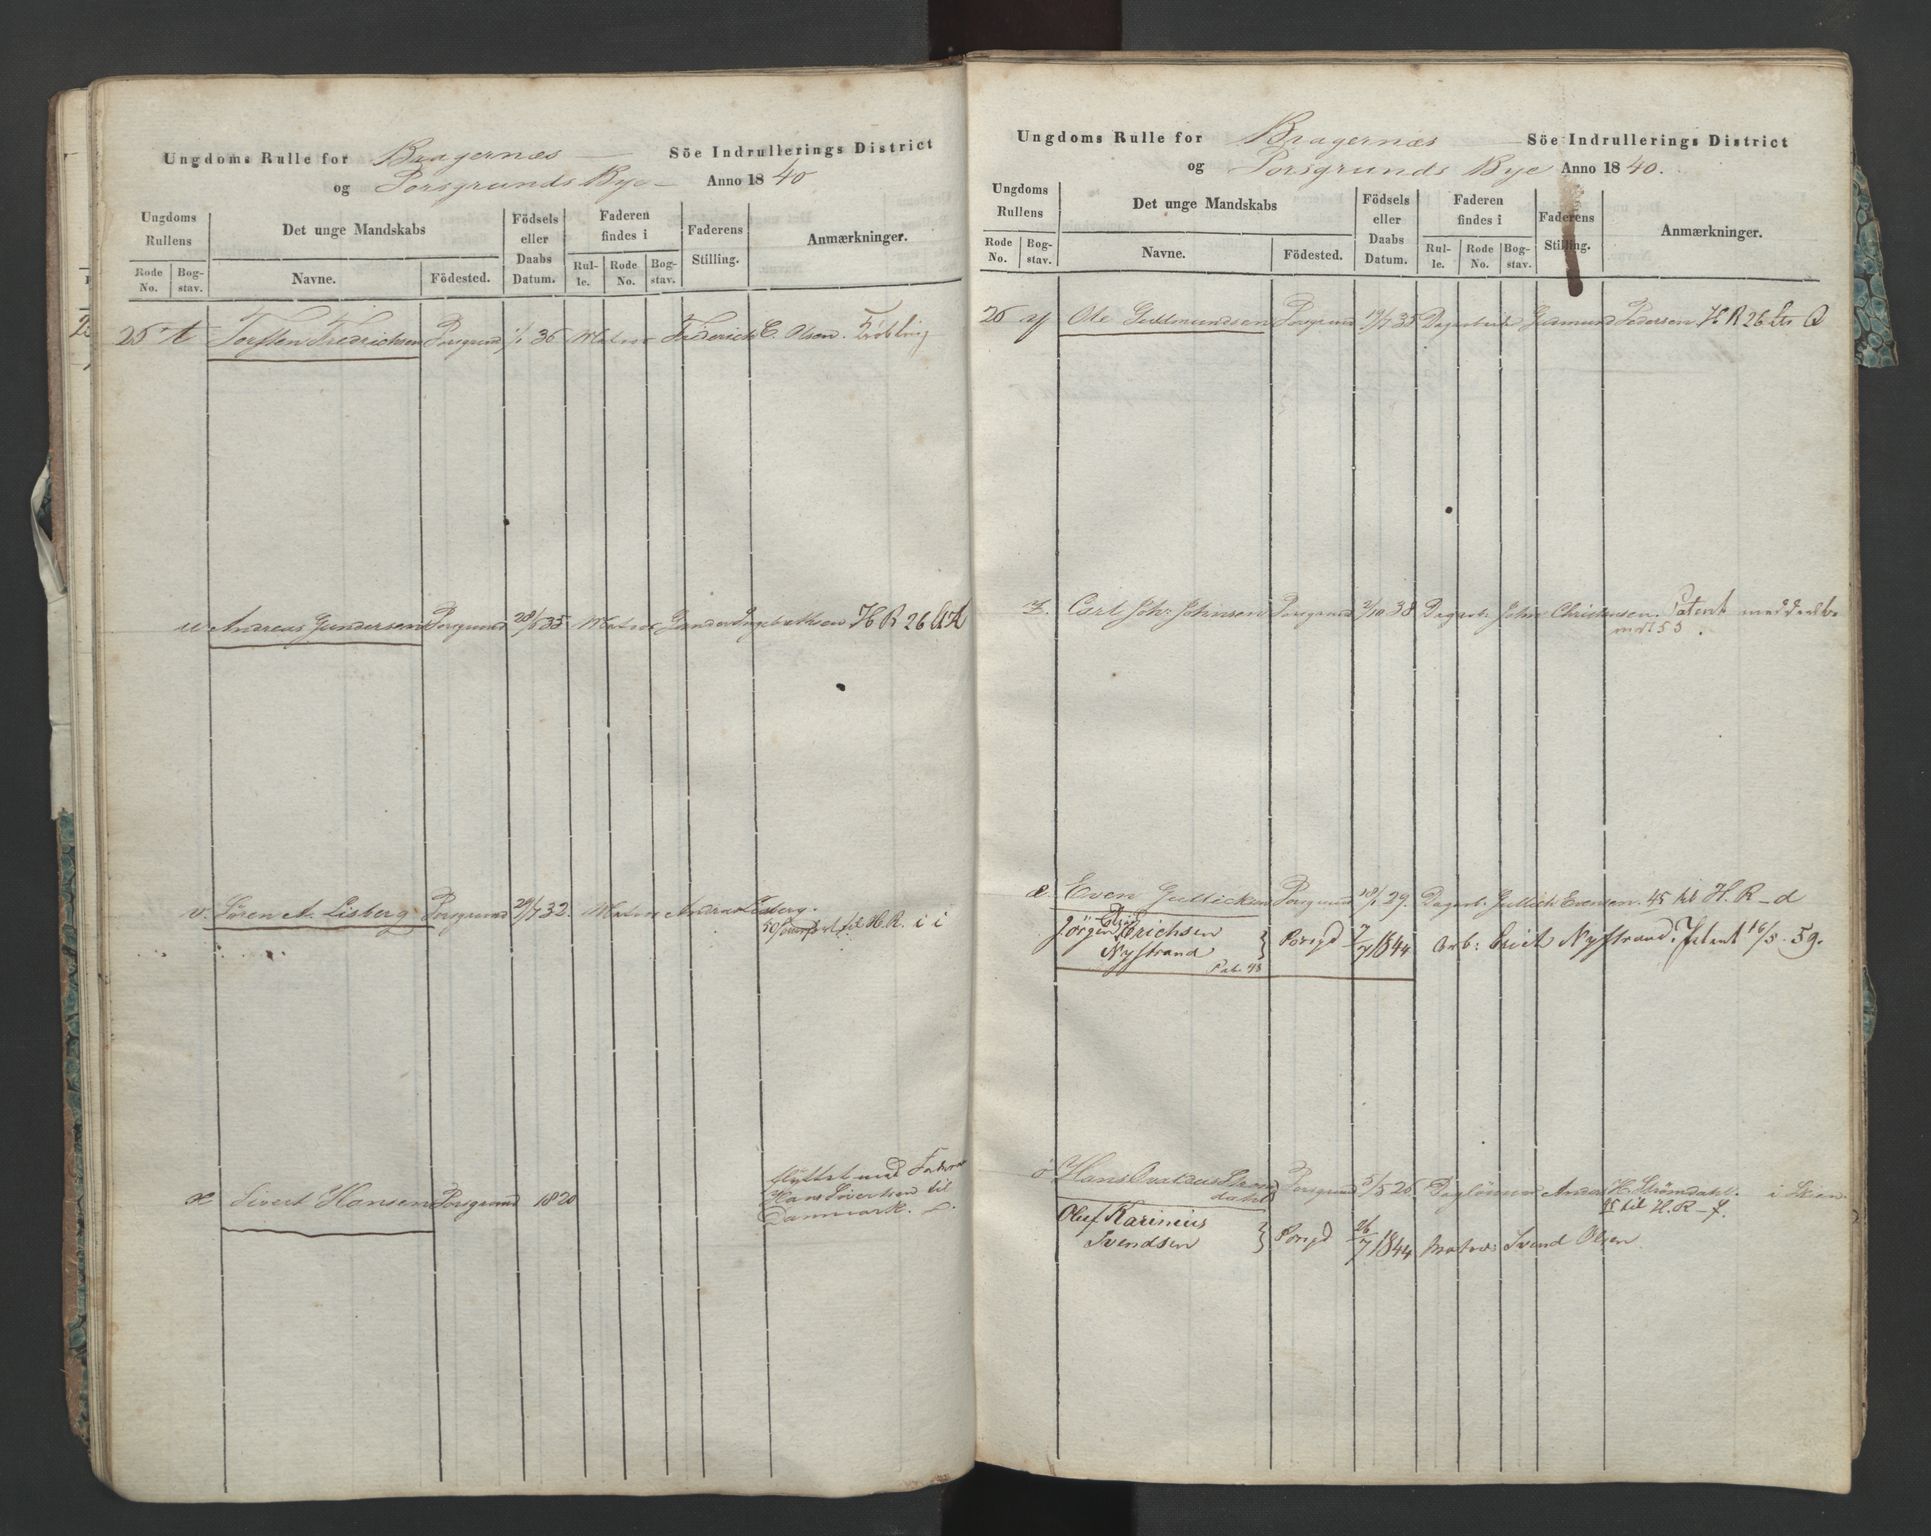 Ungdoms Rulle for Bragernæs Söe Indrullerings District
og Porsgrunds Bye Anno 1840
Ungdoms Rullens
Det unge Mandskabs
Födsels eller Daabs Datum.
Faderen findes i
Faderens Stilling.
Anmærkninger.
Rode No.
Bogstav.
Navne.
Födested.
Rulle.
Rode No.
Bogstav.
26 t Torsten Fredrichsen Porsgrund 1/1 36 Matros Frederich C. Olsen.
u Andreas Gundersen Porsgrund 28/5 35 Matros Gunder Ingebrethsen H R 26 Lit A
v. Sören A. Lisberg Porsgrund 29/7 32. Matros Andreas Lisberg.
50 til H. R. i i
x Sivert Hansen Porsgrund 1820
flyttet med Faderen
Hans Sivertsen til
Danmark.
Ungdoms Rulle for Bragernæs Söe Indrullerings District
og Porsgrunds Bye Anno 1840.
Ungdoms Rullens
Det unge Mandskabs
Födsels eller Daabs Datum.
Faderen findes i
Faderens Stilling.
Anmærkninger.
Rode No.
Bogstav.
Navne.
Födested.
Rulle.
Rode No.
Bogstav.
26 Ole Gudmundsen Porsgrund 19/7 35 Dagarbeid Gudmund Pedersen H R 26 Ltr Q
z. Carl Joh: Johnsen Porsgrund 2/10 38 Dagarb: John Christensen. Patent meddeelt
no 153.
æ Even Gullicksen Porsgrund 28/1 29. Dagarb. Gullich Evensen. 45 til H. R – d
Jörgen Erichsen
Nystrand } Porsgd 7/7 1844 Arb: Erich Nystrand. Patent 16/5. 59.
Pat. 43
ø Hans Strömdahl Porsgrund 5/5 26 Daglönner Anders H. Strömdahl. i Skien.
45 til H. R – f.
Oluf Karinius
Svendsen } Porsgd 26/7 1844 Matros: Svend Olsen